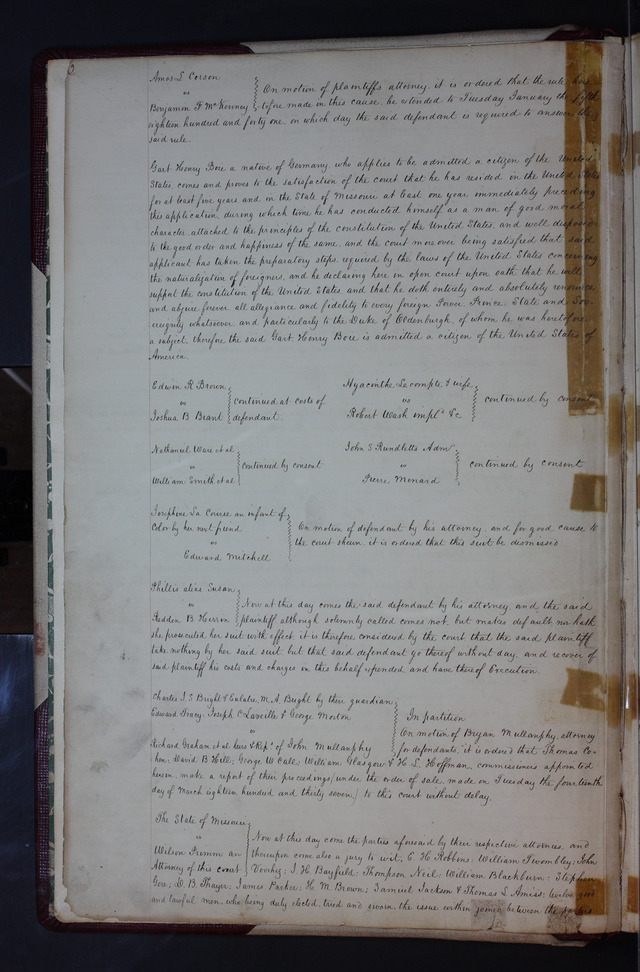 6
Amos L Corson
vs
Benjamin F McKenney
On motion of plaintiffs attorney, it is ordered that the rule here
tofore made in this cause, be extended to Tuesday January the fifth
eighteen hundred and forty one, on which day the said defendant is required to answer the
said rule.
Gart Henry Bore a native of Germany, who applies to be admitted a citizen of the United
States, comes and proves to the satisfaction of the court that he has resided in the United States
for at least five years and in the State of Missouri at least one year immediately preceding
this application, during which time he has conducted himself as a man of good moral
character, attached to the principles of the constitution of the United States, and well disposed
to the good order and happiness of the same, and the court moreover being satisfied that said
applicant has taken the preparatory steps required by the laws of the United States concerning
the naturalization of foreigners, and he declaring here in open court upon oath that he will
support the constitution of the United States, and that he doth entirely and absolutely renounce
and abjure forever all allegiance and fidelity to every foreign Power, Prince, State and Sov-
ereignty whatsoever and particularly to the Duke of Oldenburgh, of whom he was heretofore
a subject, therefore the said Gart Henry Bore is admitted a citizen of the United States of
America.
Edwin R Brown
vs
Joshua B Brant
continued at costs of
defendant.
Hyacinthe Lecompte & wife
vs
Robert Wash impl'd &c
continued by consent
Nathaniel Ware et al
vs
William Smith et al
continued by consent
John S Rundletts Adm
vs
Pierre Menard
continued by consent
Josephine La Course an infant of
Color by her next friend
vs
Edward Mitchell
On motion of defendant by his attorney, and for good cause to
the court shewn, it is ordered that this suit be dismissed
Phillis alias Susan
vs
Redden B Herron
Now at this day comes the said defendant by his attorney, and the said
plaintiff although solemnly called comes not, but makes default, nor hath
she prosecuted her suit with effect, it is therefore considered by the court that the said plaintiff
take nothing by her said suit but that said defendant go thereof without day, and recover of
said plaintiff his costs and charges in this behalf expended and have thereof Execution.
Charles J. S. Bright & Eulalie, M. A. Bright by their guardian
Edward Tracy, Joseph C Laveille & George Morton
vs
Richard Graham et al heirs & Rep's of John Mullanphy
In partition
On motion of Bryan Mullanphy, attorney
for defendants, it is ordered that Thomas Co-
hen, David B Hill; George W Call; William Glasgow & H. L. Hoffman, commissioners appointed
herein, make a report of their proceedings (under the order of sale, made on Tuesday the fourteenth
day of March eighteen hundred and thirty seven) to this court without delay.
The State of Missouri
vs
Wilson Primm an
Attorney of this court
Now at this day come the parties aforesaid by their respective attornies, and
thereupon come also a jury to wit; E. H. Robbins; William Twombley; John
Voorhis; J. H. Bayfield; Thompson Neil; William Blackburn; Stephen
Gore; D. B. Thayer; James Parker; H. M. Brown; Samuel Jackson & Thomas L Amiss; twelve good
and lawful men, who being duly elected, tried and sworn, the issue within joined between the parties